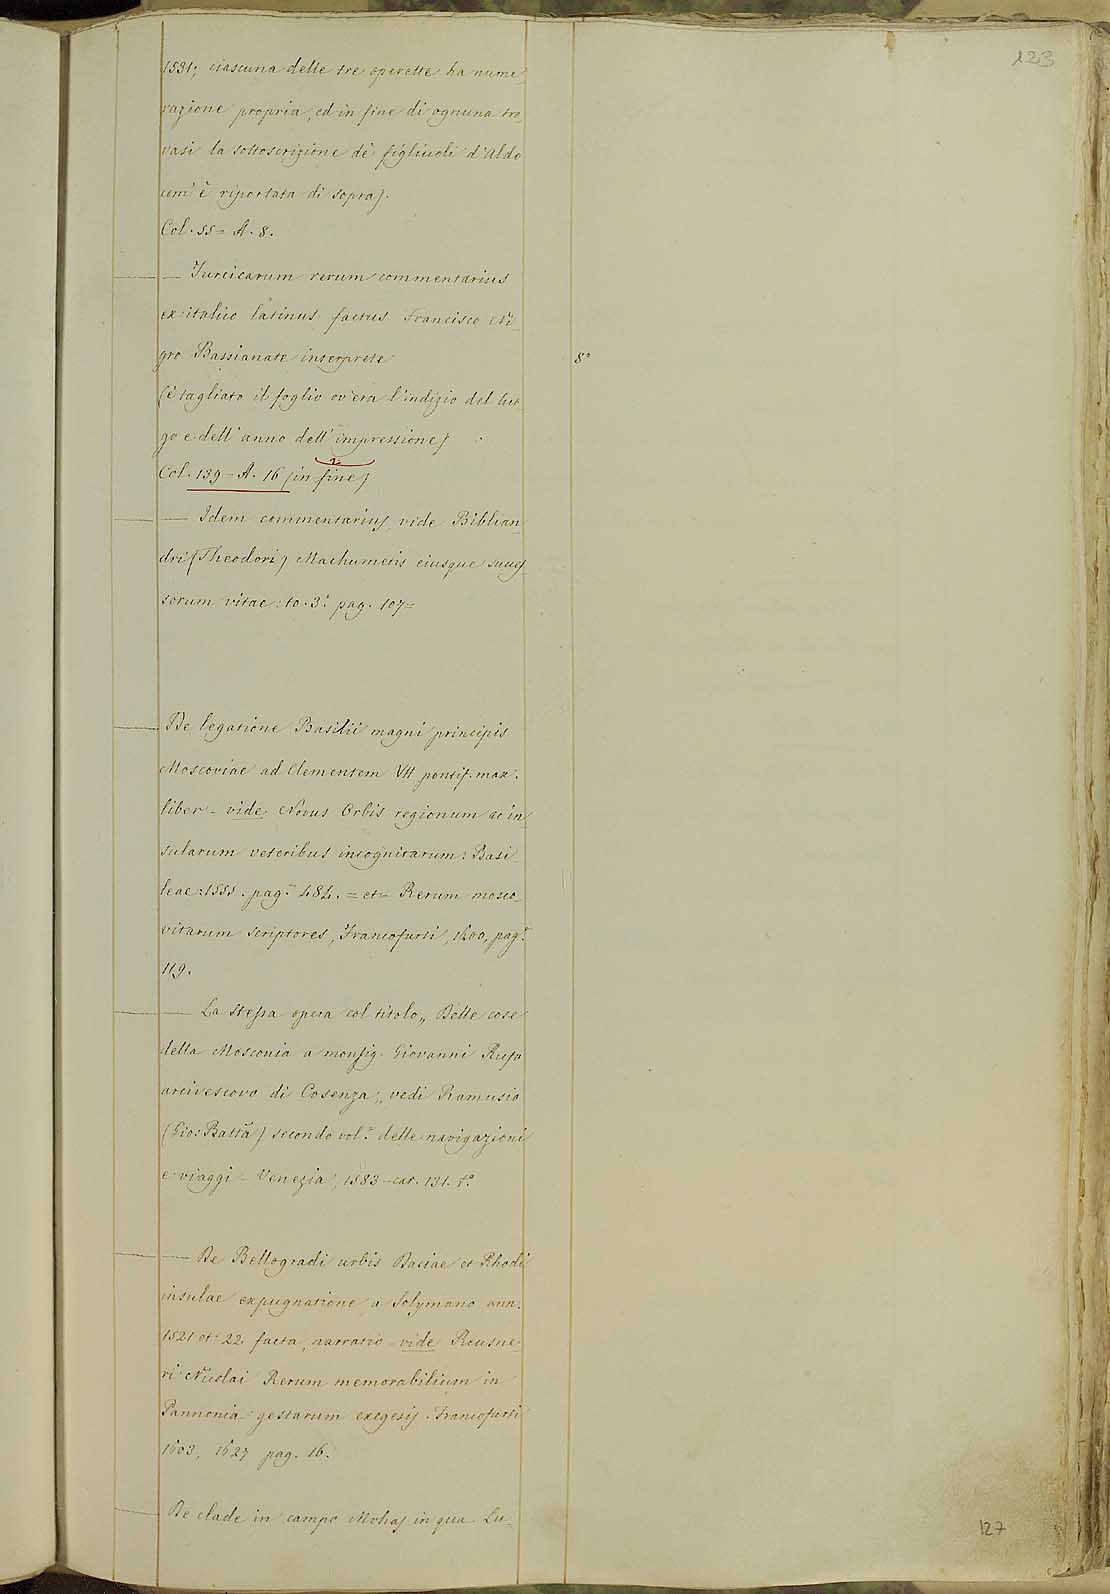 123
1531; ciascuna delle tre operette ha nume-
razione propria, ed in fine di ognuna tro-
vasi la sottoscrizione de' figliuoli d'Aldo
com' è riportata di sopra).
Col. 55 = A. 8.
— Turcicarum rerum commentarius
ex italico latinus factus Francisco Ni-
gro Bassianate interprete
8°
(è tagliato il foglio ov'era l'indizio del luo-
go e dell' anno dell' impressione)
Col. 139 - A. 16 (in fine)
— Idem commentarius, vide Biblian-
dri (Theodori) Machumetis eiusque succes-
sorum vitae: to. 3.° pag. 107=
De legatione Basilii magni principis
Moscoviae ad Clementem VII pontif. max.
liber - vide Novus Orbis regionum ac in-
sularum veteribus incognitarum: Basi-
leae: 1555. pag.ª 484. = et= Rerum mosco-
vitarum scriptores, Francofurti, 1600, pag.ª
119.
— La stessa opera col titolo „ Delle cose
della Moscovia a monsig. Giovanni Rufo
arcivescovo di Cosenza „ vedi Ramusio
(Gio: Battā) secondo vol.e delle navigazioni
e viaggi - Venezia, 1583 - car. 131. t.°
— De Bellogradi urbis Daciae et Rhodi
insulae expugnatione a Solymano ann.
1521 et 22 facta, narratio - vide Reusne-
ri Nicolai Rerum memorabilium in
Pannonia gestarum exegesis. Francofurti
1603, 1627 pag. 16.
De clade in campo Mohas in qua Lu-
127